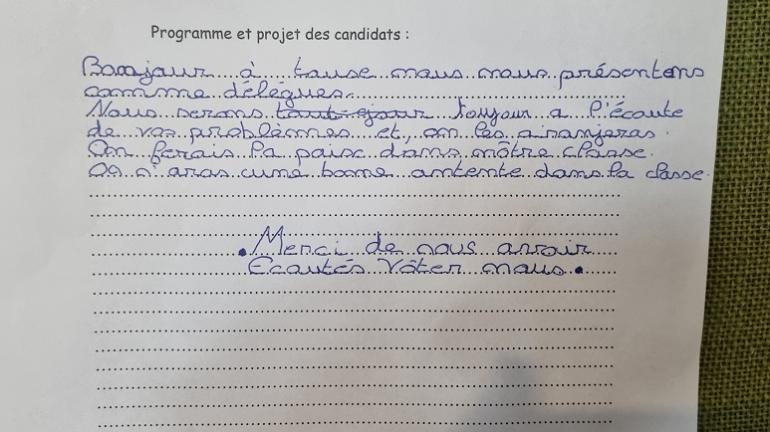 Programme et projet des candidats :
Bonjour à tousse nous nous présentons
comme délègues.
Nous serons tout ejour toujour a l'écoute
de vos problèmes et, on les aranjeras.
On ferais la paise dans nôtre classe.
On n'aras cune bonne antente dans la classe.
. Merci de nous avvoir
Ecoutés Vôter nous.